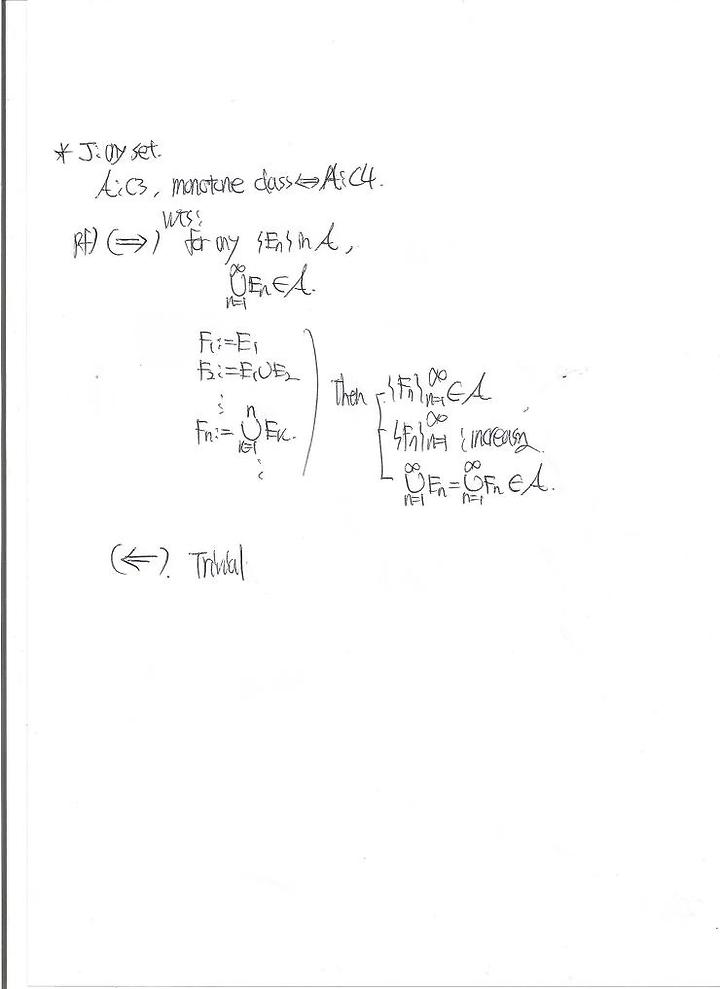 * J: any set.
A: C3, monotone class ⇔ A: C4.
WTS:
pf) (⇒) for any {En} in A,
∞∪n=1 En ∈ A.
F1 := E1
F2 := E1 ∪ E2
⋮
Fn := n∪k=1 Ek.
⋮
Then {Fn}∞n=1 ∈ A
{Fn}∞n=1 : increasing
∞∪n=1 En = ∞∪n=1 Fn ∈ A.
(⇐). Trivial